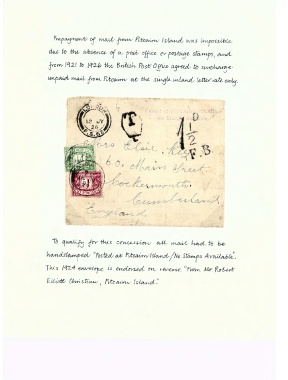 Prepayment of mail from Pitcairn Island was impossible
due to the absence of a post office or postage stamps, and
from 1921 to 1926 the British Post Office agreed to surcharge
unpaid mail from Pitcairn at the single inland letter rate only.
T
D
1 1/2
F.B
60. Main Street.
Cockermouth.
Cumberland.
England
To qualify for this concession all mail had to be
handstamped "Posted at Pitcairn Island/No Stamps Available".
This 1924 envelope is endorsed on reverse "From Mr Robert
Elliott Christian, Pitcairn Island".